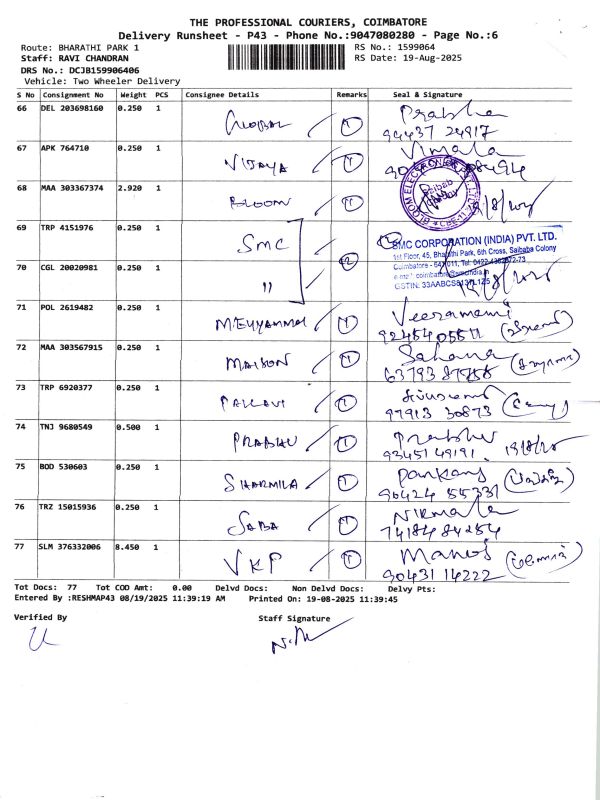 THE PROFESSIONAL COURIERS, COIMBATORE
Delivery Runsheet - P43 - Phone No.:9047080280 - Page No.:6
Route: BHARATHI PARK 1 RS No.: 1599064
Staff: RAVI CHANDRAN RS Date: 19-Aug-2025
DRS No.: DCJB159906406
Vehicle: Two Wheeler Delivery
S No Consignment No Weight PCS Consignee Details Remarks Seal & Signature
66 DEL 203698160 0.250 1 GLOBAL 1 Prabha
94437 24917
67 APK 764710 0.250 1 VIJAYA 1 Vimala
68 MAA 303367374 2.920 1 BLOOM 1
69 TRP 4151976 0.250 1 SMC
SMC CORPORATION (INDIA) PVT. LTD.
1st Floor, 45, Bharathi Park, 6th Cross, Saibaba Colony
70 CGL 20020981 0.250 1 " 2
71 POL 2619482 0.250 1 MEYYAMMAI 1 Veeramani
72 MAA 303567915 0.250 1 MAISON 1 Sahana
73 TRP 6920377 0.250 1 PALLAVI 1
97913 30873
74 TNJ 9680549 0.500 1 PRABHU 1 Prabhu
93451 49191
75 BOD 530603 0.250 1 SHARMILA 1 Pankaj
90424 55331
76 TRZ 15015936 0.250 1 SABA 1 Nirmala
74184 84254
77 SLM 376332006 8.450 1 VKP 1 Manoj
90431 14222
Tot Docs: 77 Tot COD Amt: 0.00 Delvd Docs: Non Delvd Docs: Delvy Pts:
Entered By :RESHMAP43 08/19/2025 11:39:19 AM Printed On: 19-08-2025 11:39:45
Verified By Staff Signature